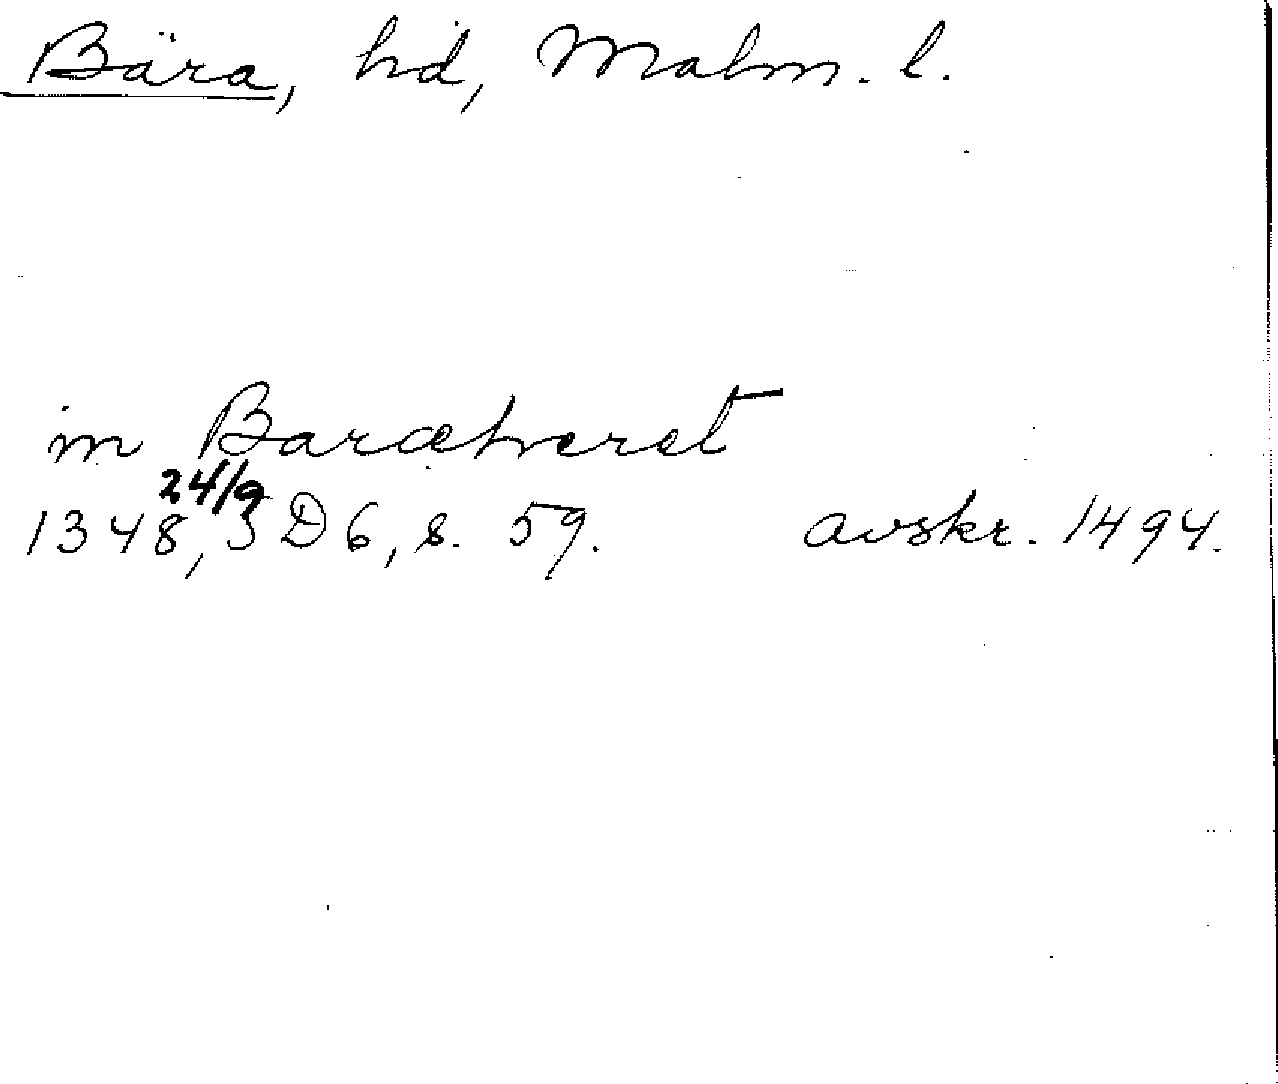 Bära, hd, Malm. l.
in Baræhæret
24/9
1348, SD 6, s. 59. avskr. 1494.